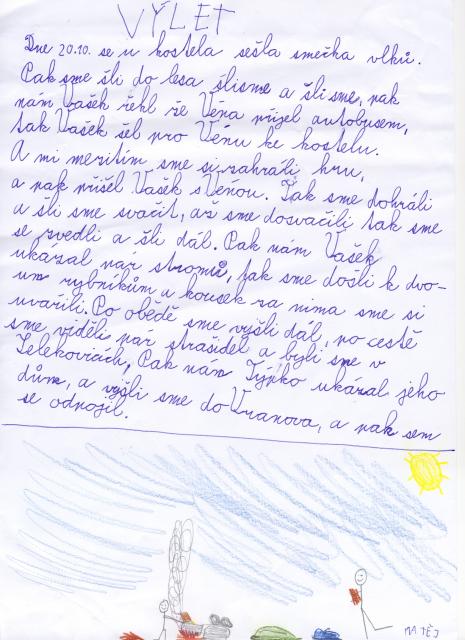 VÝLET
Dne 20.10. se u kostela sešla smečka vlků.
Pak sme šli do lesa šlisme a šli sme, pak
nám Vašek řekl že Véna přijel autobusem,
tak Vašek šel pro Vénu ke kostelu.
A mi mezitím sme si zahráli hru,
a pak přišel Vašek s Vénou. Tak sme dohráli
a šli sme svačit, až sme dosvačili, tak sme
se zvedli a šli dál. Pak nám Vašek
ukázal pár stromů, pak sme došli k dvo-
um rybníkům a kousek za nima sme si
uvařili. Po obědě sme vyšli dál, po cestě
sme viděli pár strašidel a byli sme v
Lelekovicích, Pak nám Týpko ukázal jeho
dům, a vyšli sme do Vranova, a pak sem
se odpojil.
MATĚJ